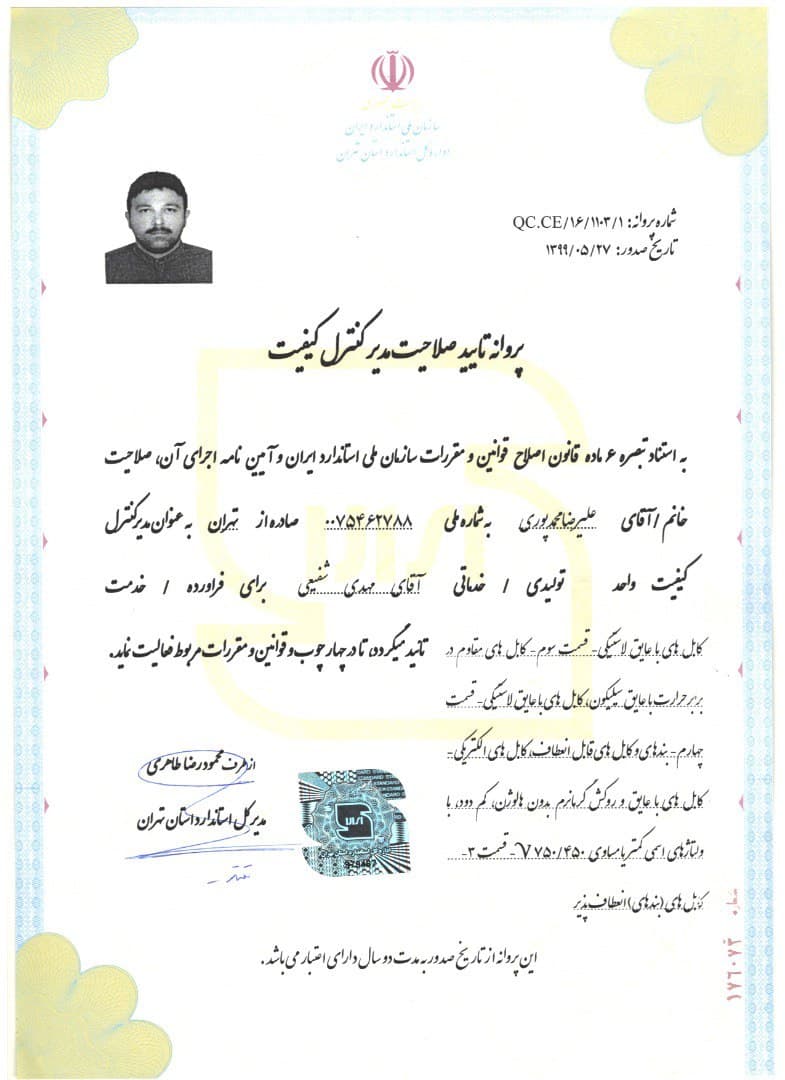 ریاست جمهوری
سازمان ملی استاندارد ایران
اداره کل استاندارد استان تهران
شماره پروانه: QC.CE/۱۶/۱۱۰۳/۱
تاریخ صدور: ۱۳۹۹/۰۵/۲۷
پروانه تایید صلاحیت مدیر کنترل کیفیت
به استناد تبصره ۶ ماده قانون اصلاح قوانین و مقررات سازمان ملی استاندارد ایران و آیین نامه اجرای آن، صلاحیت
خانم / آقای علیرضا محمدپوری به شماره ملی ۰۰۷۵۴۶۲۷۸۸ صادره از تهران به عنوان مدیر کنترل
کیفیت واحد تولیدی / خدماتی آقای مهدی شفیعی برای فراورده / خدمت
کابل های با عایق لاستیکی - قسمت سوم - کابل های مقاوم در
برابر حرارت با عایق سیلیکون، کابل های با عایق لاستیکی - قسمت
چهارم - بندهای و کابل های قابل انعطاف، کابل های الکتریکی -
کابل های با عایق و روکش گرمانرم بدون هالوژن، کم دود، با
ولتاژهای اسمی کمتر یا مساوی ۷۵۰/۴۵۰ V - قسمت ۳ -
کابل های (بندهای) انعطاف پذیر
تائید میگردد، تا در چهار چوب و قوانین و مقررات مربوط فعالیت نماید.
از طرف محمود رضا طاهری
مدیر کل استاندارد استان تهران
این پروانه از تاریخ صدور به مدت دو سال دارای اعتبار می باشد.
شماره ۱۷۶۰۷۳